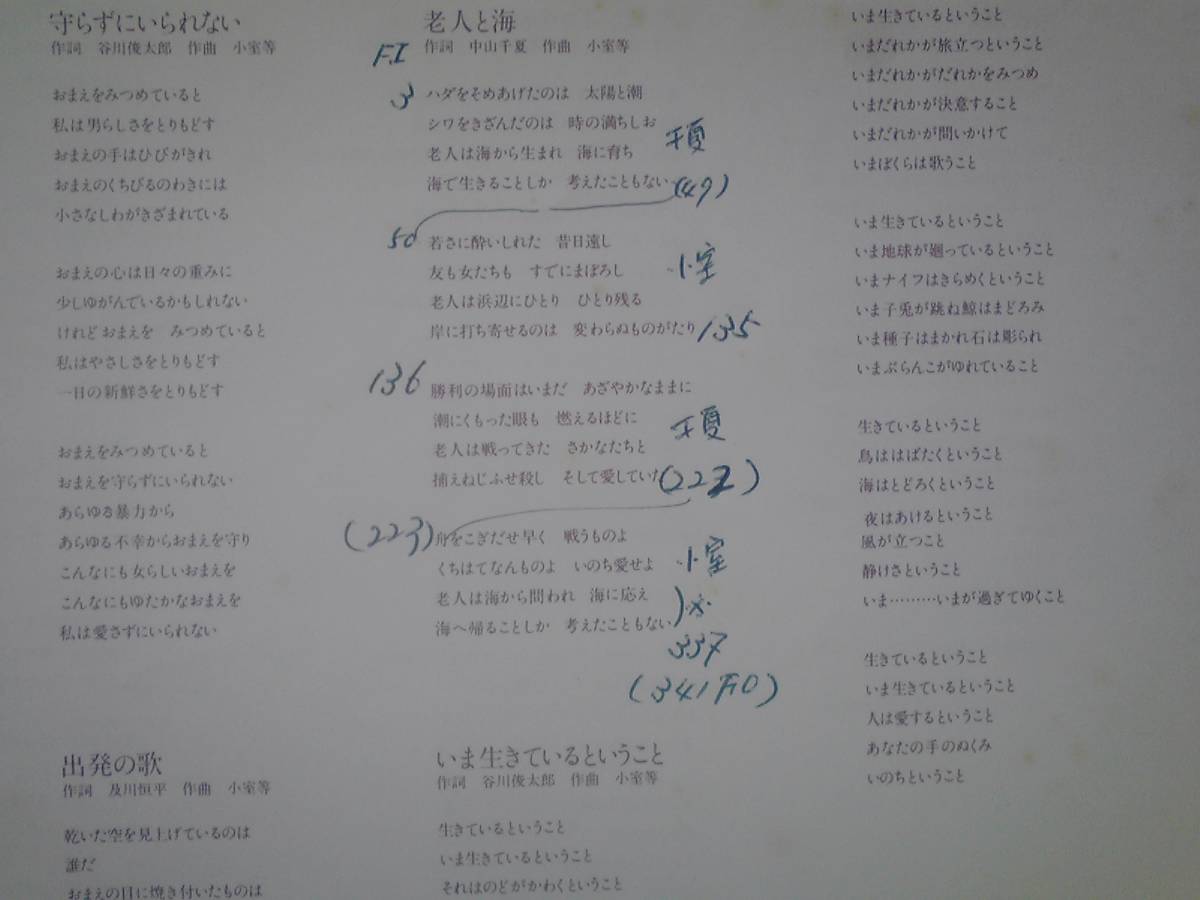 守らずにいられない
作詞　谷川俊太郎　作曲　小室等
おまえをみつめていると
私は男らしさをとりもどす
おまえの手はひびがきれ
おまえのくちびるのわきには
小さなしわがきざまれている
おまえの心は日々の重みに
少しゆがんでいるかもしれない
けれどおまえを　みつめていると
私はやさしさをとりもどす
一日の新鮮さをとりもどす
おまえをみつめていると
おまえを守らずにいられない
あらゆる暴力から
あらゆる不幸からおまえを守り
こんなにも女らしいおまえを
こんなにもゆたかなおまえを
私は愛さずにいられない
出発の歌
作詞　及川恒平　作曲　小室等
乾いた空を見上げているのは
誰だ
おまえの目に焼き付いたものは
老人と海
作詞　中山千夏　作曲　小室等
F.I
3
ハダをそめあげたのは　太陽と潮
シワをきざんだのは　時の満ちしお
千夏
老人は海から生まれ　海に育ち
海で生きることしか　考えたこともない
(49)
50
若さに酔いしれた　昔日遠し
友も女たちも　すでにまぼろし
小室
老人は浜辺にひとり　ひとり残る
岸に打ち寄せるのは　変わらぬものがたり
135
136
勝利の場面はいまだ　あざやかなままに
潮にくもった眼も　燃えるほどに
千夏
老人は戦ってきた　さかなたちと
捕えねじふせ殺し　そして愛していた
(222)
(223)
舟をこぎだせ早く　戦うものよ
くちはてなんものよ　いのち愛せよ
小室
老人は海から問われ　海に応え
海へ帰ることしか　考えたこともない
337
(341 F.O)
いま生きているということ
作詞　谷川俊太郎　作曲　小室等
生きているということ
いま生きているということ
それはのどがかわくということ
いま生きているということ
いまだれかが旅立つということ
いまだれかがだれかをみつめ
いまだれかが決意すること
いまだれかが問いかけて
いまぼくらは歌うこと
いま生きているということ
いま地球が廻っているということ
いまナイフはきらめくということ
いま子兎が跳ね鯨はまどろみ
いま種子はまかれ石は彫られ
いまぶらんこがゆれていること
生きているということ
鳥ははばたくということ
海はとどろくということ
夜はあけるということ
風が立つこと
静けさということ
いま………いまが過ぎてゆくこと
生きているということ
いま生きているということ
人は愛するということ
あなたの手のぬくみ
いのちということ